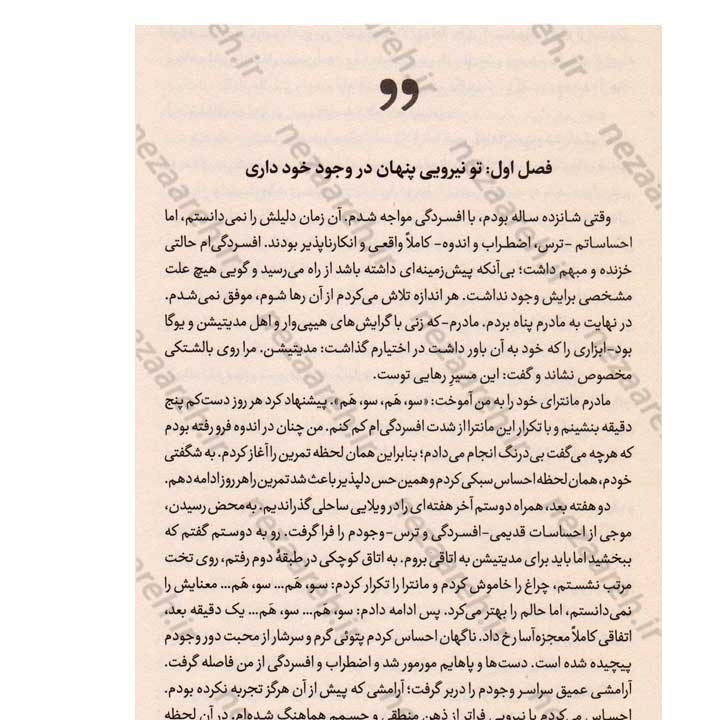 فصل اول: تو نیرویی پنهان در وجود خود داری
وقتی شانزده ساله بودم، با افسردگی مواجه شدم. آن زمان دلیلش را نمی‌دانستم، اما
احساساتم -ترس، اضطراب و اندوه- کاملاً واقعی و انکارناپذیر بودند. افسردگی‌ام حالتی
خزنده و مبهم داشت؛ بی‌آنکه پیش‌زمینه‌ای داشته باشد از راه می‌رسید و گویی هیچ علت
مشخصی برایش وجود نداشت. هر اندازه تلاش می‌کردم از آن رها شوم، موفق نمی‌شدم.
در نهایت به مادرم پناه بردم. مادرم-که زنی با گرایش‌های هیپی‌وار و اهل مدیتیشن و یوگا
بود-ابزاری را که خود به آن باور داشت در اختیارم گذاشت: مدیتیشن. مرا روی بالشتکی
مخصوص نشاند و گفت: این مسیرِ رهایی توست.
مادرم مانترای خود را به من آموخت: «سو، هَم، سو، هَم». پیشنهاد کرد هر روز دست‌کم پنج
دقیقه بنشینم و با تکرار این مانترا از شدت افسردگی‌ام کم کنم. من چنان در اندوه فرو رفته بودم
که هرچه می‌گفت بی‌درنگ انجام می‌دادم؛ بنابراین همان لحظه تمرین را آغاز کردم. به شگفتی
خودم، همان لحظه احساس سبکی کردم و همین حس دلپذیر باعث شد تمرین را هر روز ادامه دهم.
دو هفته بعد، همراه دوستم آخر هفته‌ای را در ویلایی ساحلی گذراندیم. به‌محض رسیدن،
موجی از احساسات قدیمی-افسردگی و ترس-وجودم را فرا گرفت. رو به دوستم گفتم که
ببخشید اما باید برای مدیتیشن به اتاقی بروم. به اتاق کوچکی در طبقهٔ دوم رفتم، روی تخت
مرتب نشستم، چراغ را خاموش کردم و مانترا را تکرار کردم: سو، هَم... سو، هَم... معنایش را
نمی‌دانستم، اما حالم را بهتر می‌کرد. پس ادامه دادم: سو، هَم... سو، هَم... یک دقیقه بعد،
اتفاقی کاملاً معجزه‌آسا رخ داد. ناگهان احساس کردم پتوئی گرم و سرشار از محبت دور وجودم
پیچیده شده است. دست‌ها و پاهایم مورمور شد و اضطراب و افسردگی از من فاصله گرفت.
آرامشی عمیق سراسر وجودم را دربر گرفت؛ آرامشی که پیش از آن هرگز تجربه نکرده بودم.
احساس می‌کردم با نیرویی فراتر از ذهن منطقی و جسمم هماهنگ شده‌ام. در آن لحظه
nezaareh.ir